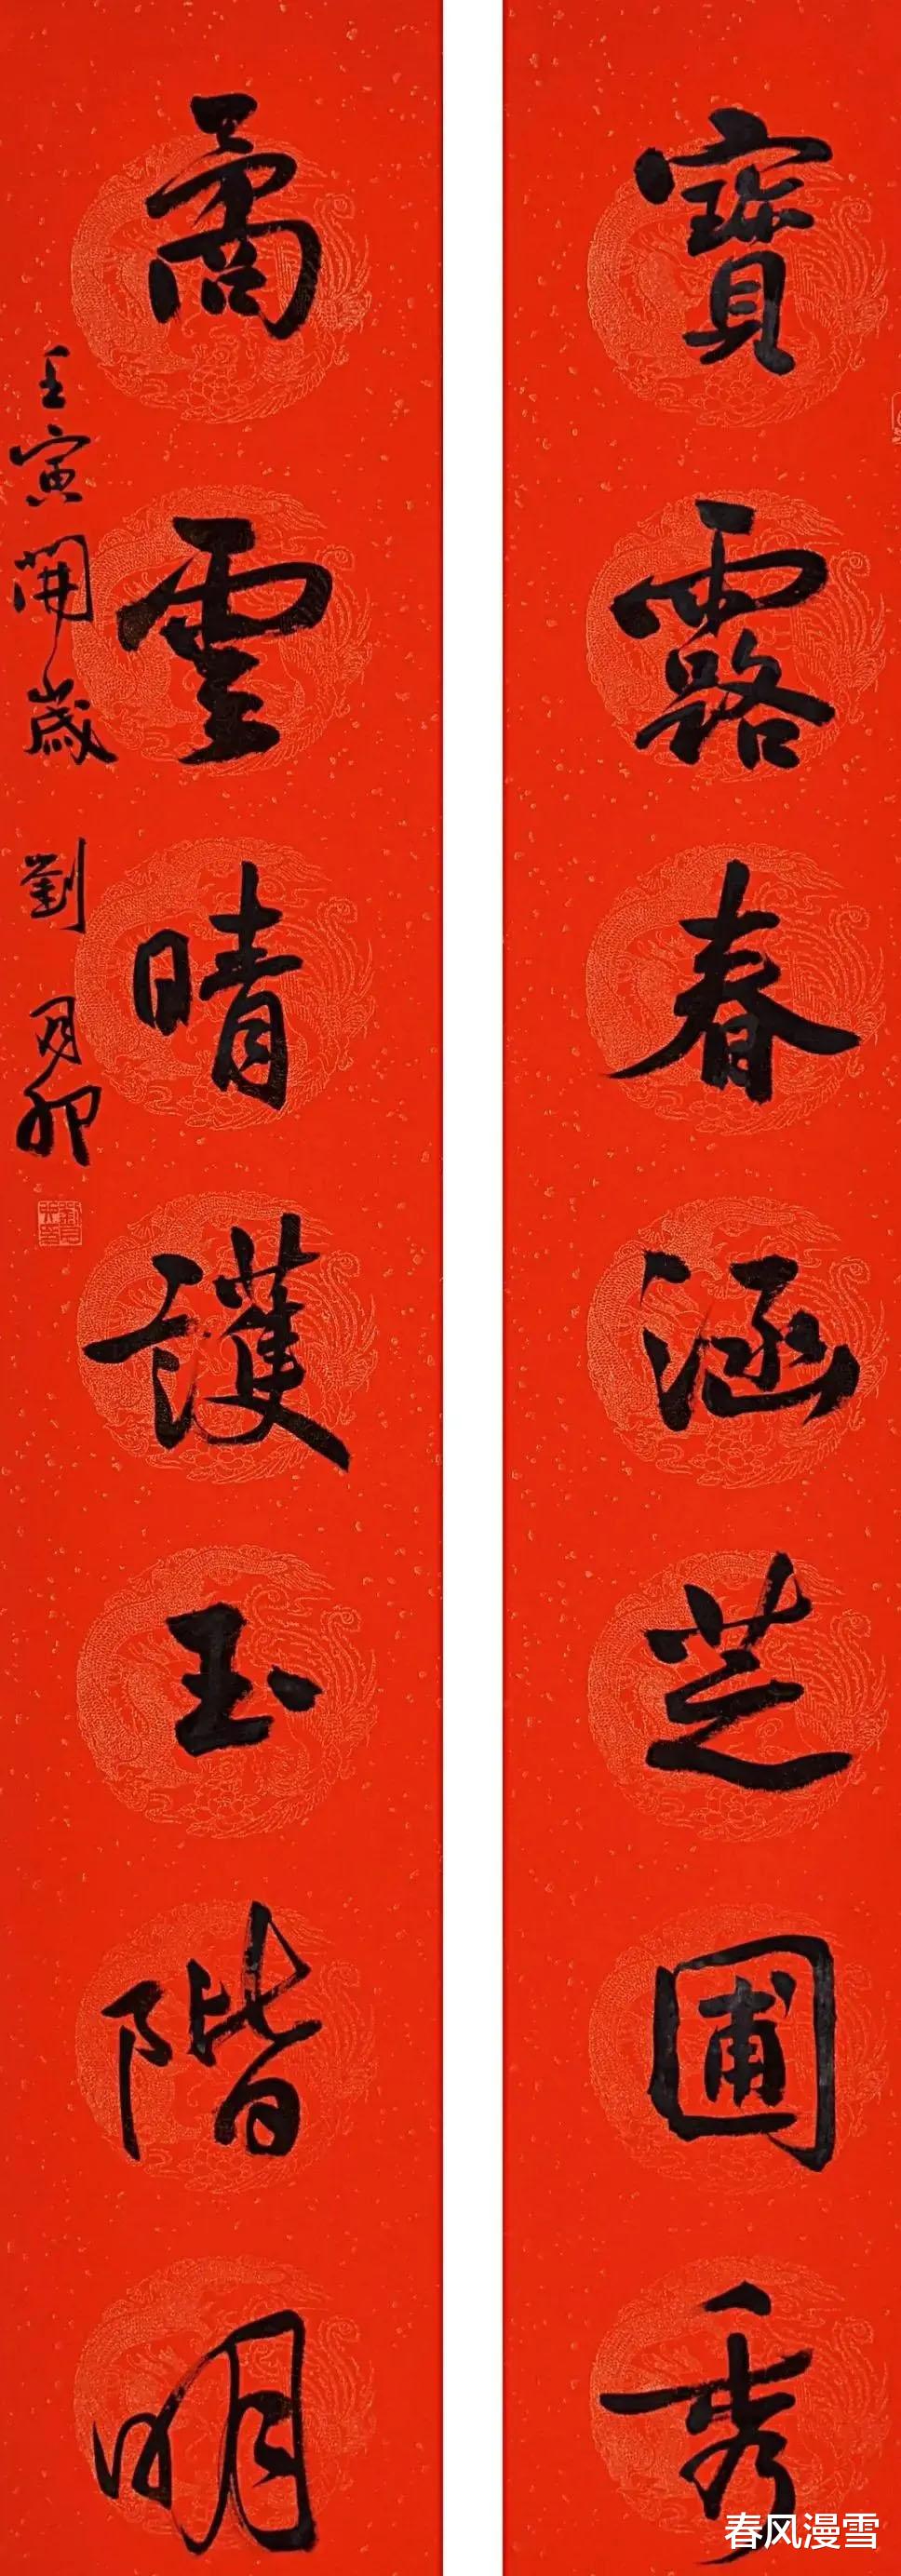 寶露春涵芝圃秀
矞雲晴護玉階明
壬寅開歲 劉月卯
春风漫雪